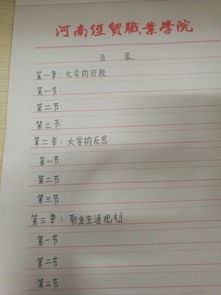 河南经贸職業学院
目 录
第一章：大学的目标
第一节：
第二节：
第三节：
第二章：大学的反思
第一节
第二节
第三节
第三章：职业生涯规划
第一节
第二节
第三节